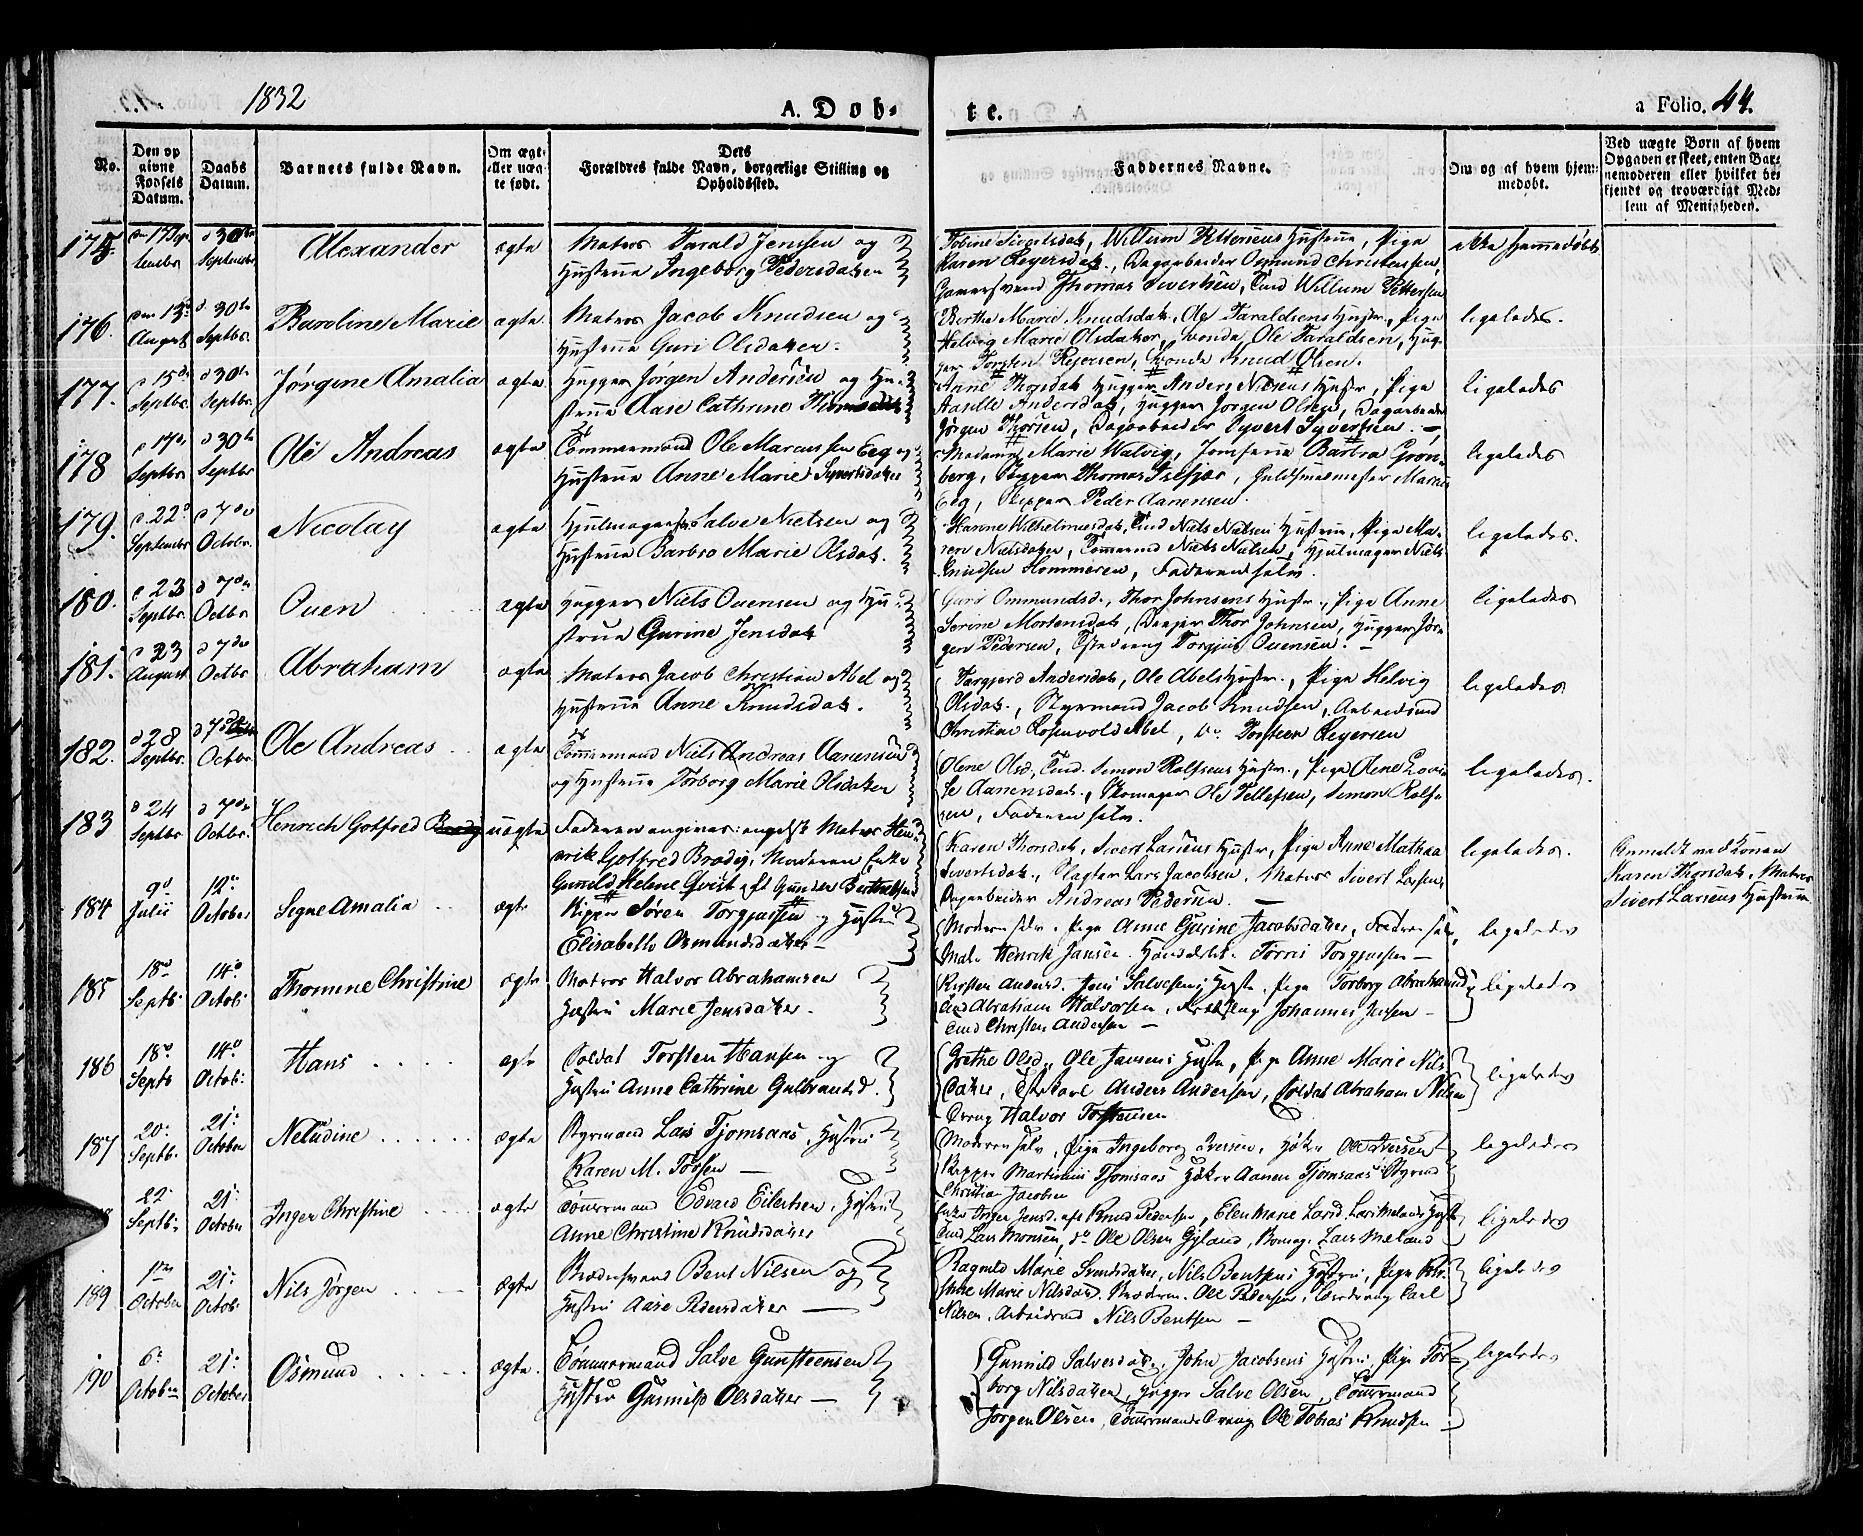 1832
A. Døb-
te.
a Folio. 44.
No.
Den op
givne
Fødsels
Datum.
Daabs
Datum.
Barnets fulde Navn.
Om ægte
eller uæg-
te født.
Dets
Forældres fulde Navn, borgerlige Stilling og
Opholdssted.
Faddernes Navne.
Om og af hvem hjem-
medøbt.
Ved uægte Børn af hvem
Opgaven er skeet, enten Bar-
nemoderen eller hvilket be-
kjendt og troværdigt Med-
lem af Menigheden.
175. 30te Septembr Alexander ægte Matros Tarald Jensen og
Hustrue Ingeborg Pedersdatter
Willum Pettersens Hustrue, Pige
Karen Reyersdatr, Dagarbeider Osmund Christensen,
Thomas Sivertsen, Tind Willum Pettersen
ikke hjemmedøbt
176. August d 30te Septbr. Baroline Marie ægte Matros Jacob Knudsen og
Hustrue Guri Olsdatter.
Berthe Marie Knudsdatr, Ole Taraldsens Hustr., Pige
Helvig Marie Olsdatter, Svend Ole Taraldsen, Hug-
ger Torsten Rejersen, Knud Olsen.
ligeledes.
177. d 15de Septbr. d 30te Septbr. Jørgine Amalia ægte Hugger Jørgen Andersen og Hu-
strue Aase Cathrine
Anne Thorsdatr Hugger Anders Nielsens Hustr, Pige
Aaselle Andersdatr, Hugger Jørgen Olsen, Dagarbeider
Jørgen Thorsen, Dagarbeider Syvert Syvertsen.
ligeledes
178 d 17de Septbr d 30te Septbr Ole Andreas ægte Tømmermand Ole Marcussen Eeg og
Hustrue Anne Marie Syvertsdatter
Madame Marie Walvig, Jomfrue Barbra Grøn-
berg, Skipper Thomas Trefjær, Guldsmedmester Marcus
Eeg, Skipper Peder Aanensen.
ligeledes
179. d 22de Septembr d 7de Octobr. Nicolay ægte Hjulmager Salve Nielsen og
Hustrue Barbro Marie Olsdatr.
Hanne Wilhelmesdatr, Tind Niels Nielsens Hustrue, Pige Ma-
ren Nielsdatter, Niels Nielsen, Hjulmager Niels
Knudsen Hommeren, Faderen selv.
ligeledes.
180. d 23 Septbr. d 7de Octbr. Ouen ægte Hugger Niels Ouensen og Hu-
strue Gurine Jensdatr
Guri Ommundsd., Thor Johnsens Hustr., Pige Anne
Serine Mortensdatr, Thor Johnsen, Hugger Jør-
gen Pedersen, Torgjus Ouensen.
ligeledes
181. d 23 August d 7de Octbr. Abraham ægte Matros Jacob Christian Abel og
Hustrue Anne Knudsdatr.
Targjerd Andersdatr, Ole Abels Hustr., Pige Helvig
Olsdatr., Styrmand Jacob Knudsen, Arbeidsmd
Christian Rosenvold Abel, do Torsteen Reyersen
ligeledes
182. d 28 Septbr. d 7de Octbr. Ole Andreas ægte Tømmermand Niels Andreas Aanensen
og Hustrue Torborg Marie Olsdatter
Olene Olsd, Tind. Simon Rolfsens Hustr., Pige Olene Lovi-
se Aanensdatr., Skomager Ole Tellefsen, Simon Rolf-
sen, Faderen selv.
ligeledes.
183 d 24 Septbr d 7de Octbr. Henrich Gotfred uægte Faderen angives: engelsk Matros Hen-
rik Gotfred Brodig, Moderen Enke
Gunild Helene Qvist
Karen Thorsdatr, Sivert Larsens Hustr, Pige Anne Mathea
Sivertsdatr., Slagter Lars Jacobsen, Matros Sivert Larsen,
Dagarbeider Andreas Pedersen.
ligeledes.
Anmeldt ved Konen
Karen Thorsdatr, Matros
Sivert Larsens Hustrue
184 9d Julii October Signe Amalia ægte Skipper Søren Torgjussen og Hustru
Elisabeth Osmundsdatter
Moderen selv. Pige Anne Gurine Jacobsdatter, Faderen selv,
Henrik Jansen. Tørris Torgjussen
ligeledes
185 18d Septb: 14d Octob: Thomine Christine ægte Matros Halvor Abrahamsen
Hustru Marie Jensdatter.
Kirsten Andersd. Salvesens Hustr. Pige Torborg Abrahamsd
Tind Abraham Halvorsen, Johannes Jensen
Tind Christen Andersen
ligeledes
186 18d. Septb 14d Octob: Hans ægte Soldat Torsten Hansen og
Hustru Anne Cathrine Gulbrandsd.
Grethe Olsd., Ole Jansens Hustr, Pige Anne Marie Nils-
datter, Anders Andersen, Soldat Abraham Nilsen
Dreng Halvor Torstensen
ligeledes
187 20. Septb. 21. October Neludine ægte Styrmand Lars Tjomsaas, Hustru
Karen M. Torsen
Moderen selv, Pige Ingeborg Iversen, Høker Ole Iversen
Skipper Martinius Tjomsaas Høker Aanen Tjomsaas Styrmd
Christian Jacobsen
ligeledes
22. Septb. 21. October Inger Christine ægte Tømmermand Edvard Eilertsen, Hustru
Anne Christine Knudsdatter
Enke Inger Jensd. eft Knud Pedersen, Elen Marie Larsd. Lars Melands Hustr
Tind Lars Monsen, do Ole Olsen Gyland, Lars Meland
ligeledes
189 1ste October 21. Octob. Nils Jørgen ægte Bent Nilsen og
Hustru Aase Pedersdatter
Ragnild Marie Svendsdatter, Nils Bentsens Hustru, Pige
Marie Nilsdatr. Ole Pedersen, Dreng Carl
Nilsen, Arbeidsmd Nils Bentsen
ligeledes
190 6. October 21. October Osmund ægte. Tømmermand Salve Gunsteensen
Hustru Gunnild Olsdatter
Gunnild Salvesdatr., John Jacobsens Hustru, Pige Tor-
borg Nilsdatter, Hugger Salve Olsen, Tømmermand
Jørgen Olsen, Tømmermands Dreng Ole Tobias Knudsen
ligeledes